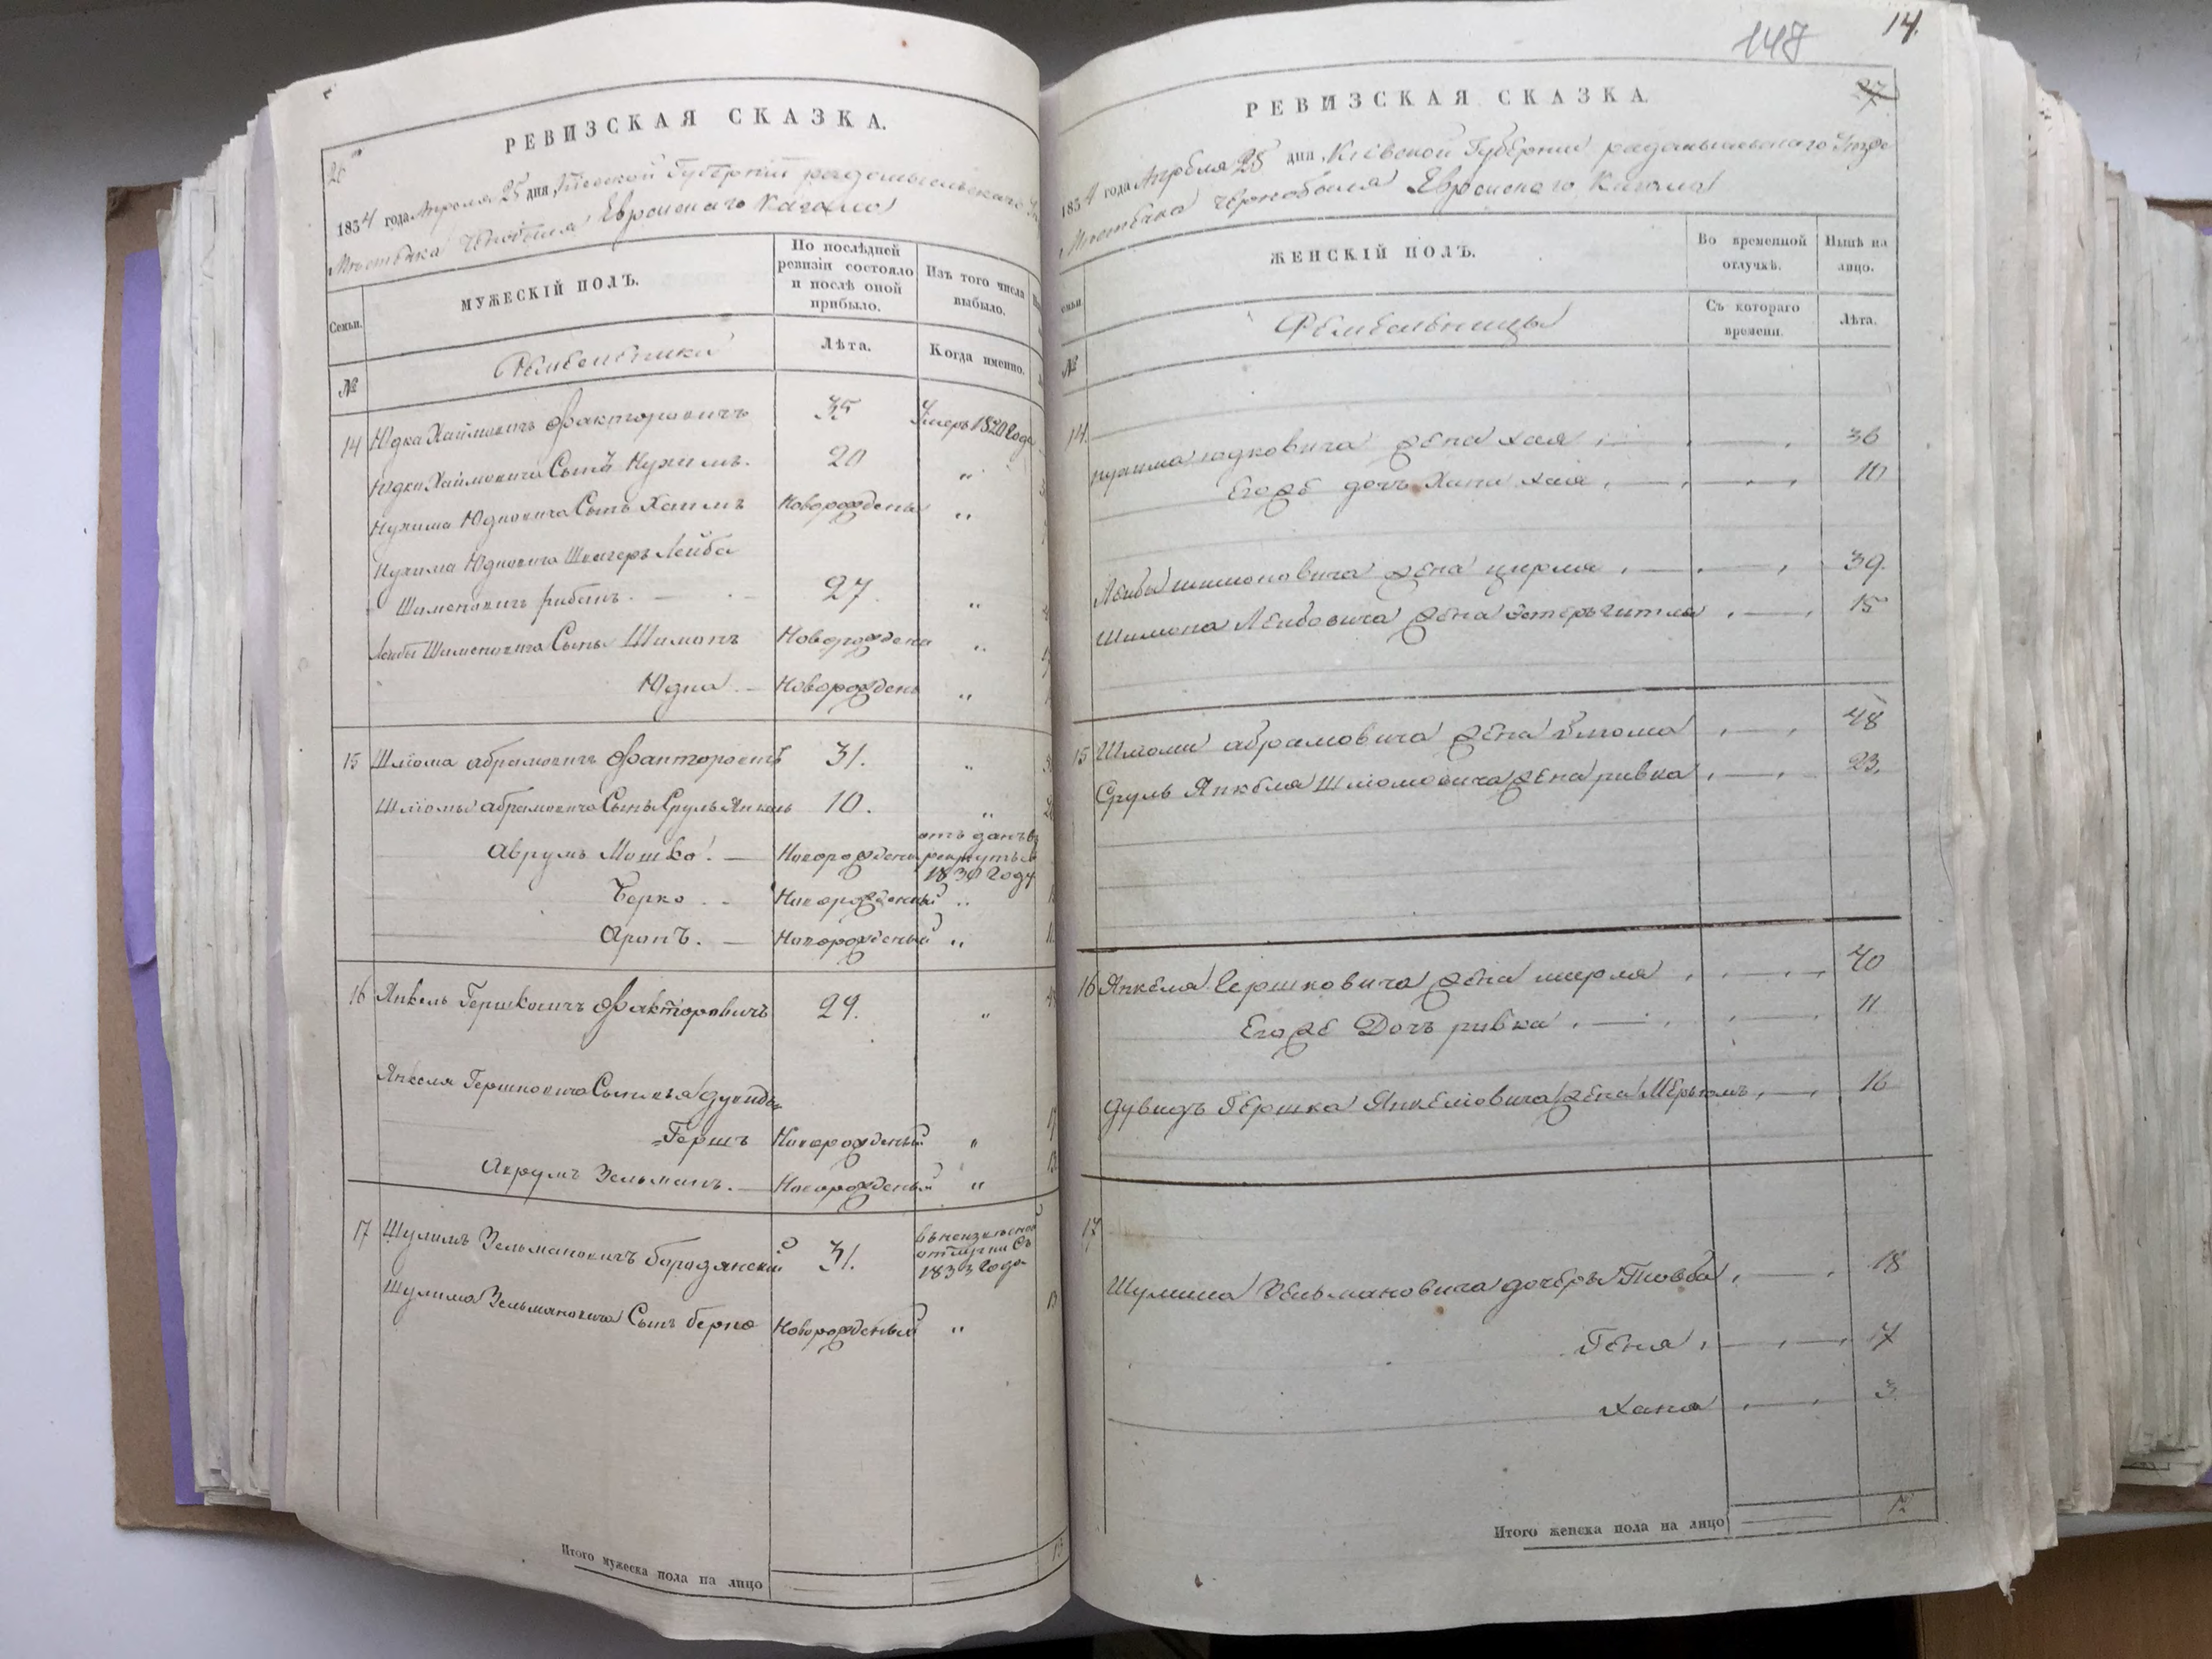 РЕВИЗСКАЯ СКАЗКА.
26
1834 года Апреля 25 дня, Кіевской Губерніи радомысльскаго
Местечка Чернобыля Еврейскаго Кагала
Семьи.
МУЖЕСКІЙ ПОЛЪ.
По послѣдней ревизіи состояло и послѣ оной прибыло.
Изъ того числа выбыло.
№
Лѣта.
Когда именно.
14 Юдка Хаймовичъ Факторовичъ 35 Умеръ 1820 Года
Юдки Хаймовича Сынъ Нухимъ. 20 "
Нухима Юдковича Сынъ Хаимъ Новорожденъ "
Нухима Юдковича Швагеръ Лейба
Шимоновичъ рибакъ. 27. "
Лейбы Шимоновича Сынъ Шимонъ Новорожденъ "
Юдка. — Новорожденъ "
15 Шліома абрамовичъ Факторовичъ 31. "
Шліомы абрамовича Сынъ Сруль Янкель 10. "
Аврумъ Мошко. — Новорожденъ отъ данъ въ рекруты в 1830 Году
Берко Новорожденный "
Аронъ. — Новорожденый "
16 Янкель Гершковичъ Факторовичъ 29. "
Янкеля Гершковича Сыновья дувидъ
Гершъ Новорожденый "
Аврумъ Зельманъ. — Новорожденый "
17 Шулимъ Зельмановичъ бородянскій 31. 1833 Года
Шулима Зельмановича Сынъ берко Новорожденый "
Итого мужеска пола на лицо 13
148 14.
27
РЕВИЗСКАЯ СКАЗКА.
1834 года Апреля 25 дня Кіевской Губерніи радомысльскаго
Местечка Чернобыля Еврейскаго Кагала
Семьи.
ЖЕНСКІЙ ПОЛЪ.
Во временной отлучкѣ.
Нынѣ на лицо.
№
Съ котораго времени.
Лѣта.
14. нухима юдковича жена хая 36
Егоже дочъ Хана хая 10
Лейбы шимоновича жена цирля 39.
Шимона Лейбовича жена естеръ гитля 15
15 Шліоми абрамовича жена 48
Сруль Янкеля Шліомовича жена ривка 23.
16 Янкеля Гершковича жена широя 40
Егоже Дочъ ривка 11
дувидъ Гершка Янкелювича жена Меръямъ 16
17
Шулима Зельмановича дочеръ Товба 18
Геня 17
Хана 3
Итого женска пола на лицо 12